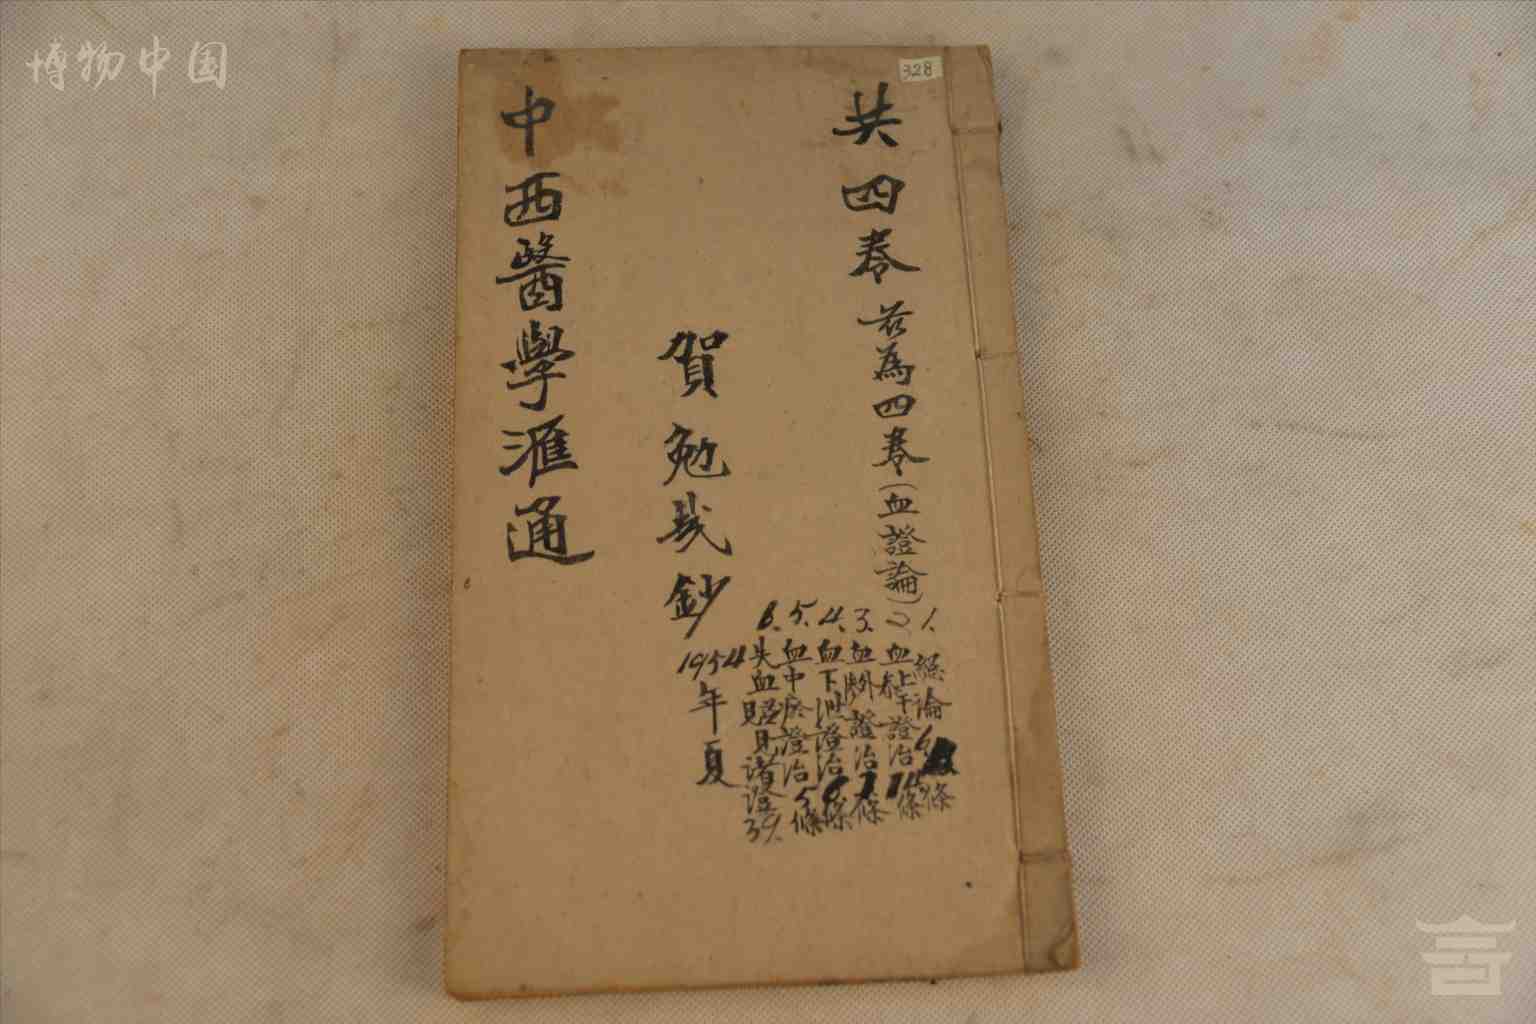 博物中国
328
共四卷
茲為四卷(血證論)
1. 總論6條
2. 血上干證治14條
3. 血外滲證治7條
4. 血下泄證治6條
5. 血中瘀證治5條
6. 失血兼見諸證39.
賀勉哉鈔
1954年夏
中西醫學滙通